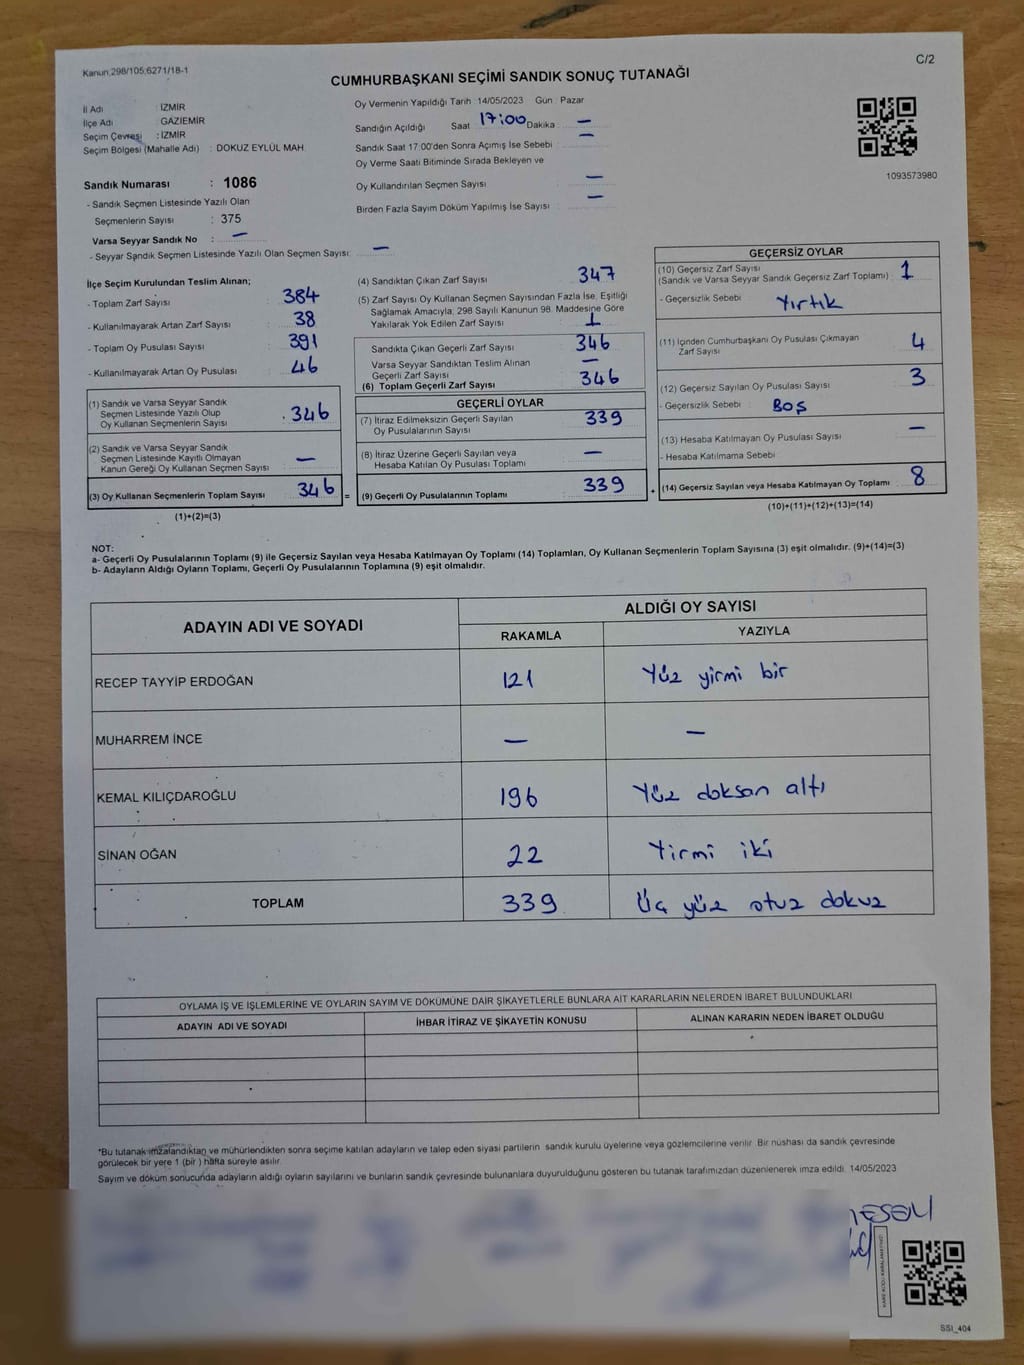 Kanun.298/105;6271/18-1
C/2
CUMHURBAŞKANI SEÇİMİ SANDIK SONUÇ TUTANAĞI
İl Adı : İZMİR
İlçe Adı : GAZİEMİR
Seçim Çevresi : İZMİR
Seçim Bölgesi (Mahalle Adı) : DOKUZ EYLÜL MAH.
Sandık Numarası : 1086
- Sandık Seçmen Listesinde Yazılı Olan
Seçmenlerin Sayısı : 375
Varsa Seyyar Sandık No : —
- Seyyar Sandık Seçmen Listesinde Yazılı Olan Seçmen Sayısı: —
Oy Vermenin Yapıldığı Tarih : 14/05/2023 Gün : Pazar
Sandığın Açıldığı Saat 17:00 Dakika : —
Sandık Saat 17:00'den Sonra Açımış İse Sebebi : —
Oy Verme Saati Bitiminde Sırada Bekleyen ve
Oy Kullandırılan Seçmen Sayısı : —
Birden Fazla Sayım Döküm Yapılmış İse Sayısı : —
1093573980
İlçe Seçim Kurulundan Teslim Alınan;
- Toplam Zarf Sayısı : 384
- Kullanılmayarak Artan Zarf Sayısı : 38
- Toplam Oy Pusulası Sayısı : 391
- Kullanılmayarak Artan Oy Pusulası : 46
(1) Sandık ve Varsa Seyyar Sandık
Seçmen Listesinde Yazılı Olup
Oy Kullanan Seçmenlerin Sayısı : 346
(2) Sandık ve Varsa Seyyar Sandık
Seçmen Listesinde Kayıtlı Olmayan
Kanun Gereği Oy Kullanan Seçmen Sayısı : —
(3) Oy Kullanan Seçmenlerin Toplam Sayısı : 346 =
(1)+(2)=(3)
(4) Sandıktan Çıkan Zarf Sayısı : 347
(5) Zarf Sayısı Oy Kullanan Seçmen Sayısından Fazla İse, Eşitliği
Sağlamak Amacıyla, 298 Sayılı Kanunun 98. Maddesine Göre
Yakılarak Yok Edilen Zarf Sayısı : 1
Sandıkta Çıkan Geçerli Zarf Sayısı : 346
Varsa Seyyar Sandıktan Teslim Alınan
Geçerli Zarf Sayısı : —
(6) Toplam Geçerli Zarf Sayısı : 346
GEÇERLİ OYLAR
(7) İtiraz Edilmeksizin Geçerli Sayılan
Oy Pusulalarının Sayısı : 339
(8) İtiraz Üzerine Geçerli Sayılan veya
Hesaba Katılan Oy Pusulası Toplamı : —
(9) Geçerli Oy Pusulalarının Toplamı : 339 +
GEÇERSİZ OYLAR
(10) Geçersiz Zarf Sayısı
(Sandık ve Varsa Seyyar Sandık Geçersiz Zarf Toplamı) : 1
- Geçersizlik Sebebi : Yırtık
(11) İçinden Cumhurbaşkanı Oy Pusulası Çıkmayan
Zarf Sayısı : 4
(12) Geçersiz Sayılan Oy Pusulası Sayısı : 3
- Geçersizlik Sebebi : BOŞ
(13) Hesaba Katılmayan Oy Pusulası Sayısı : —
- Hesaba Katılmama Sebebi :
(14) Geçersiz Sayılan veya Hesaba Katılmayan Oy Toplamı : 8
(10)+(11)+(12)+(13)=(14)
NOT:
a- Geçerli Oy Pusulalarının Toplamı (9) ile Geçersiz Sayılan veya Hesaba Katılmayan Oy Toplamı (14) Toplamları, Oy Kullanan Seçmenlerin Toplam Sayısına (3) eşit olmalıdır. (9)+(14)=(3)
b- Adayların Aldığı Oyların Toplamı, Geçerli Oy Pusulalarının Toplamına (9) eşit olmalıdır.
ADAYIN ADI VE SOYADI
ALDIĞI OY SAYISI
RAKAMLA YAZIYLA
RECEP TAYYİP ERDOĞAN 121 Yüz yirmi bir
MUHARREM İNCE — —
KEMAL KILIÇDAROĞLU 196 Yüz doksan altı
SİNAN OĞAN 22 Yirmi iki
TOPLAM 339 Üç yüz otuz dokuz
OYLAMA İŞ VE İŞLEMLERİNE VE OYLARIN SAYIM VE DÖKÜMÜNE DAİR ŞİKAYETLERLE BUNLARA AİT KARARLARIN NELERDEN İBARET BULUNDUKLARI
ADAYIN ADI VE SOYADI İHBAR İTİRAZ VE ŞİKAYETİN KONUSU ALINAN KARARIN NEDEN İBARET OLDUĞU
*Bu tutanak imzalandıktan ve mühürlendikten sonra seçime katılan adayların ve talep eden siyasi partilerin sandık kurulu üyelerine veya gözlemcilerine verilir. Bir nüshası da sandık çevresinde
görülecek bir yere 1 (bir ) hafta süreyle asılır.
Sayım ve döküm sonucunda adayların aldığı oyların sayılarını ve bunların sandık çevresinde bulunanlara duyurulduğunu gösteren bu tutanak tarafımızdan düzenlenerek imza edildi. 14/05/2023
SSI_404